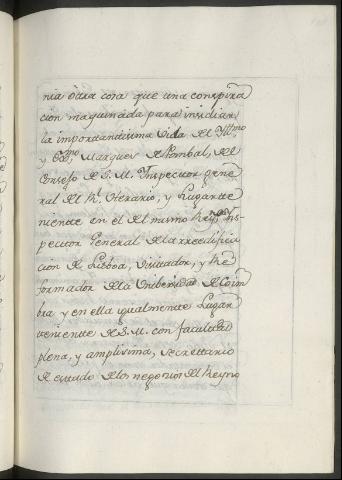 nia òtra cosa que una conspira
cion maquinada para insidiar
la importantisima vida del Ill.mo
y Ex.mo Marques de Pombal, del
Consejo de S. M. Inspector gene
ral del R.l Herario, y Lugarte
niente en èl del mismo Rey, Ins-
pector General de la rreedifica
cion de Lisboa, Visitador, y Re
formador de la Universidad de Coim
bra y en ella igualmente Lugar
teniente de S. M. con facultad
plena, y amplisima, Secrettario
de estado de los negozios del Reyno